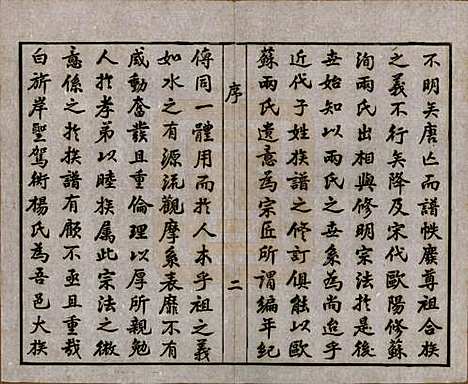 不明矣唐亡而譜帙廢尊祖合族
之義不行矣降及宋代歐陽修蘇
洵兩氏出相與修明宗法於是後
世始知以兩氏之世系為尚迨乎
近代子姓族譜之修訂俱能以歐
蘇兩氏遺意為宗匠所謂編年紀
序
二
傳同一體用而於人本乎祖之義
如水之有源流觀摩系表靡不有
感動奮發且重倫理以厚所親勉
人於孝弟以睦族屬此宗法之微
意係之於族譜有顧不亟且重哉
白旂岸聖駕衖楊氏為吾邑大族